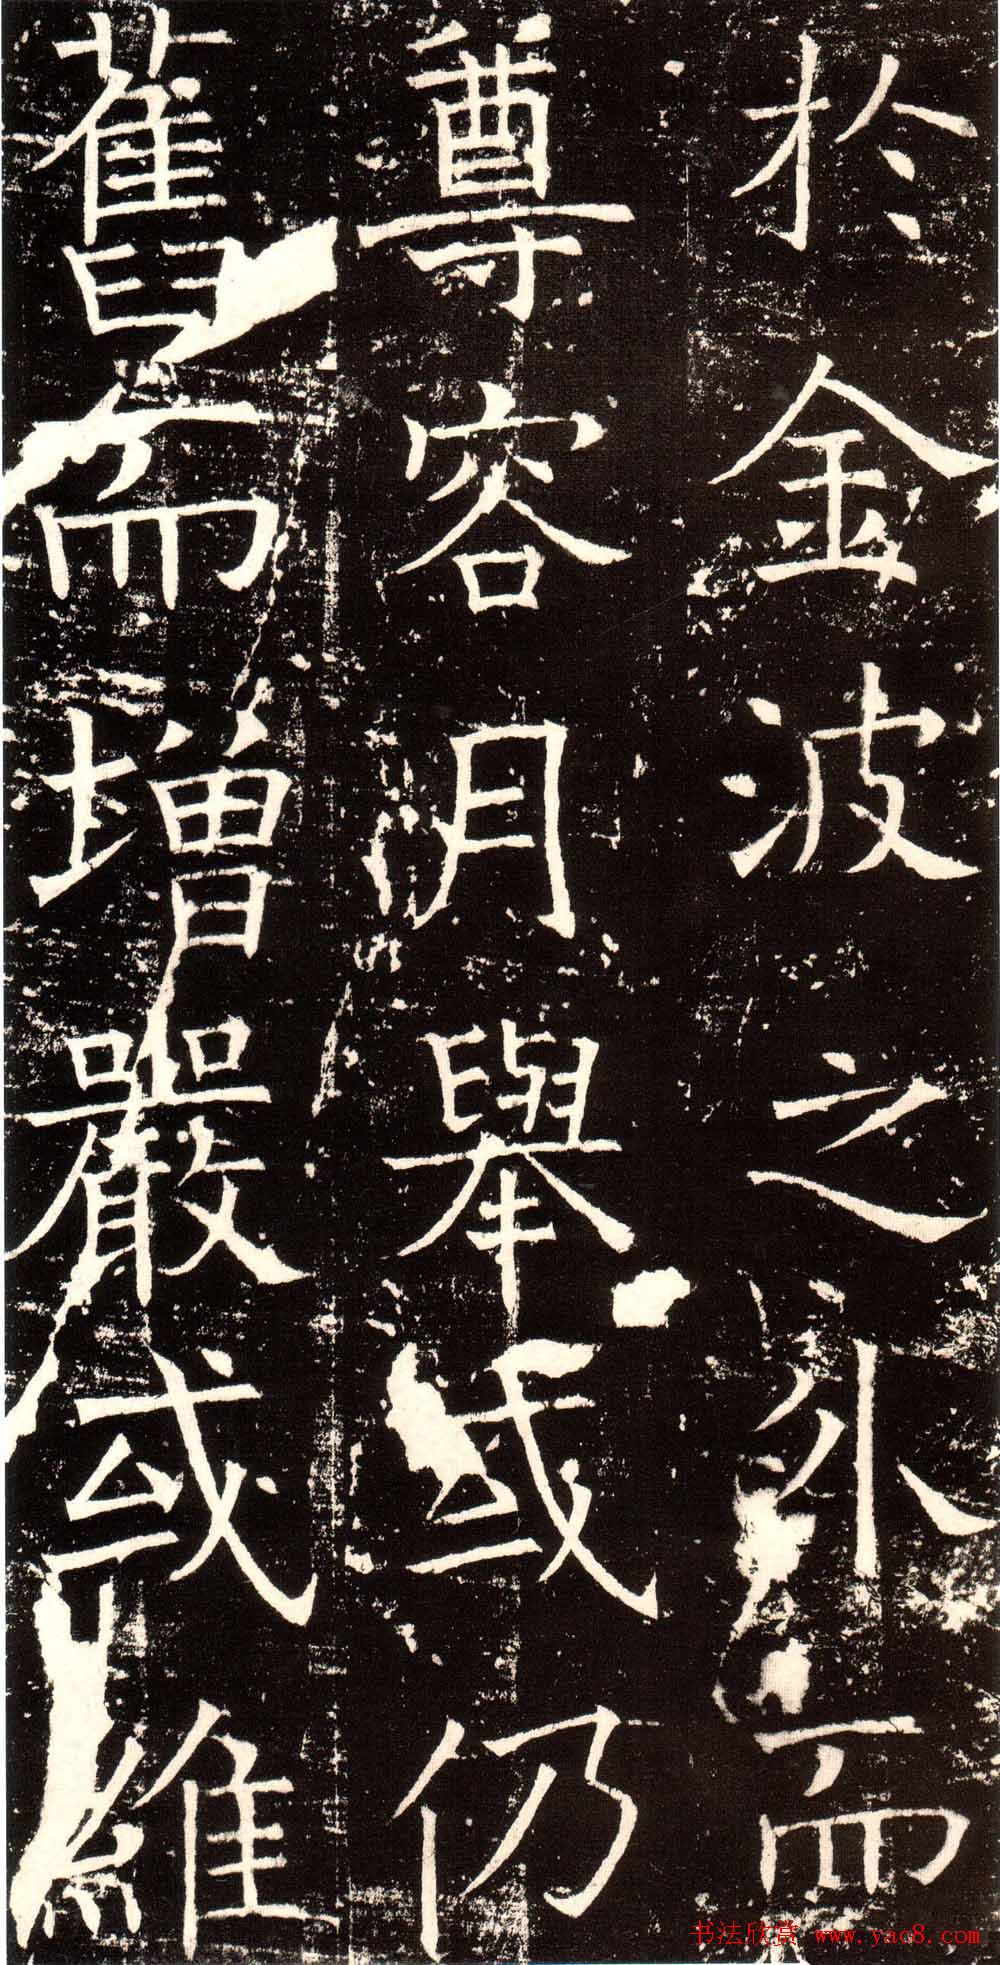 於金波之外而
尊容月舉或仍
舊而增嚴或維
书法欣赏 www.yac8.com